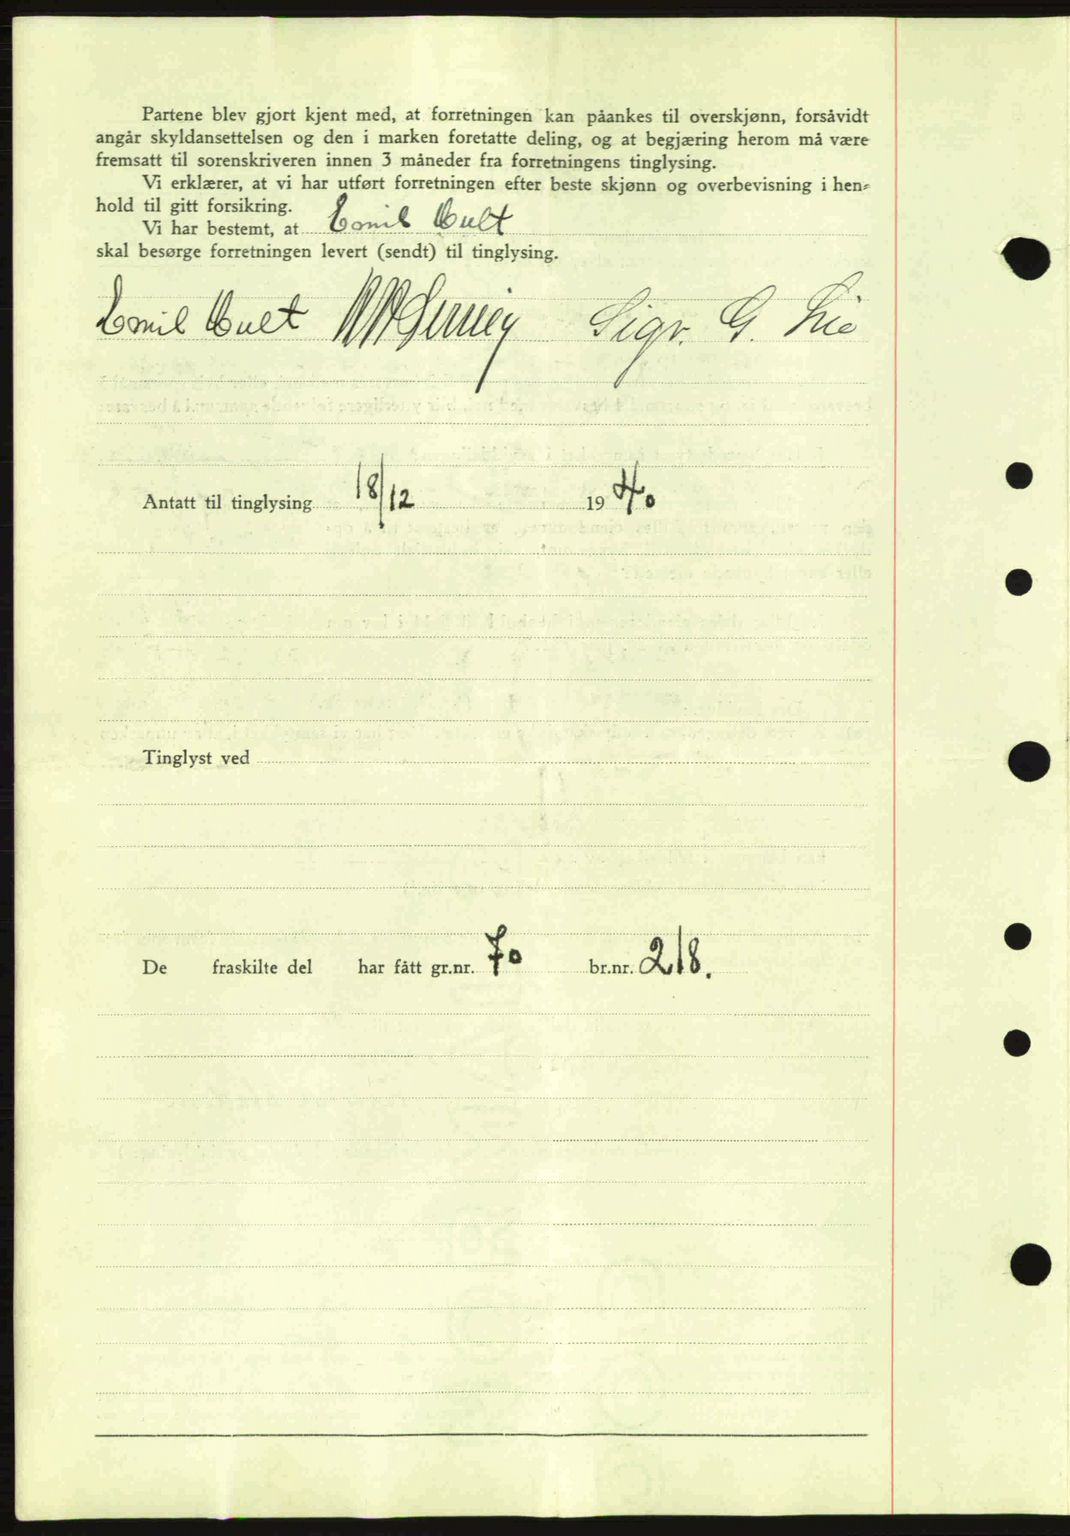 Partene blev gjort kjent med, at forretningen kan påankes til overskjønn, forsåvidt
angår skyldansettelsen og den i marken foretatte deling, og at begjæring herom må være
fremsatt til sorenskriveren innen 3 måneder fra forretningens tinglysing.
Vi erklærer, at vi har utført forretningen efter beste skjønn og overbevisning i hen-
hold til gitt forsikring.
Vi har bestemt, at Emil Hult
skal besørge forretningen levert (sendt) til tinglysing.
Emil Hult Sigv. G. Lie
Antatt til tinglysing 18/12 1940
Tinglyst ved
De fraskilte del har fått gr.nr. 70 br.nr. 218.